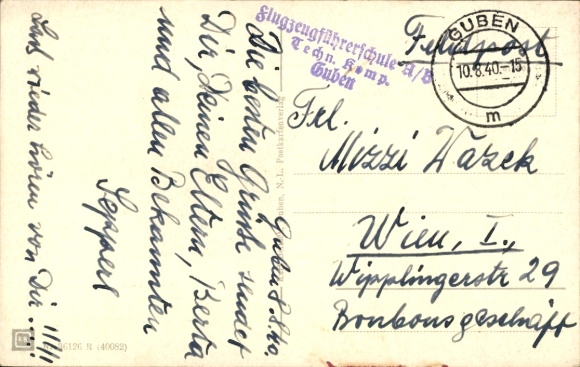 Guben 8.8.40.
Die besten Grüße sendet
Dir, Deinen Eltern, Berta
und allen Bekannten
Sepperl
Lass wieder hören von Dir...!!!!
Flugzeugführerschule A/B
Techn. Komp.
Guben
Feldpost
GUBEN
10.8.40.-15
m
Frl.
Mizzi Wazek
Wien, I.,
Wipplingerstr 29
Bonbonsgeschäft
Guben, N.-L. Postkartenverlag
R (40082)